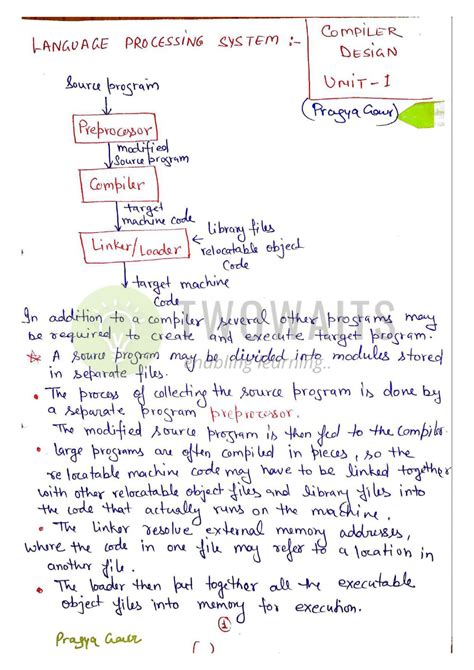 LANGUAGE PROCESSING SYSTEM :-
COMPILER
DESIGN
UNIT-1
(Pragya Gaur)
Source program
Preprocessor
modified
Source program
Compiler
target
machine code
Linker/Loader
Library files
relocatable object
Code
target machine
Code
TWOWAITS
enabling learning..
In addition to a compiler several other programs may
be required to create and execute target program.
A source program may be divided into modules stored
in separate files.
• The process of collecting the source program is done by
a separate program preprocessor.
The modified source program is then fed to the compiler.
• large programs are often compiled in pieces, so the
relocatable machine code may have to be linked together
with other relocatable object files and library files into
the code that actually runs on the machine.
• The linker resolve external memory addresses,
where the code in one file may refer to a location in
another file.
• The loader then put together all the executable
object files into memory for execution.
1
Pragya Gaur
( )